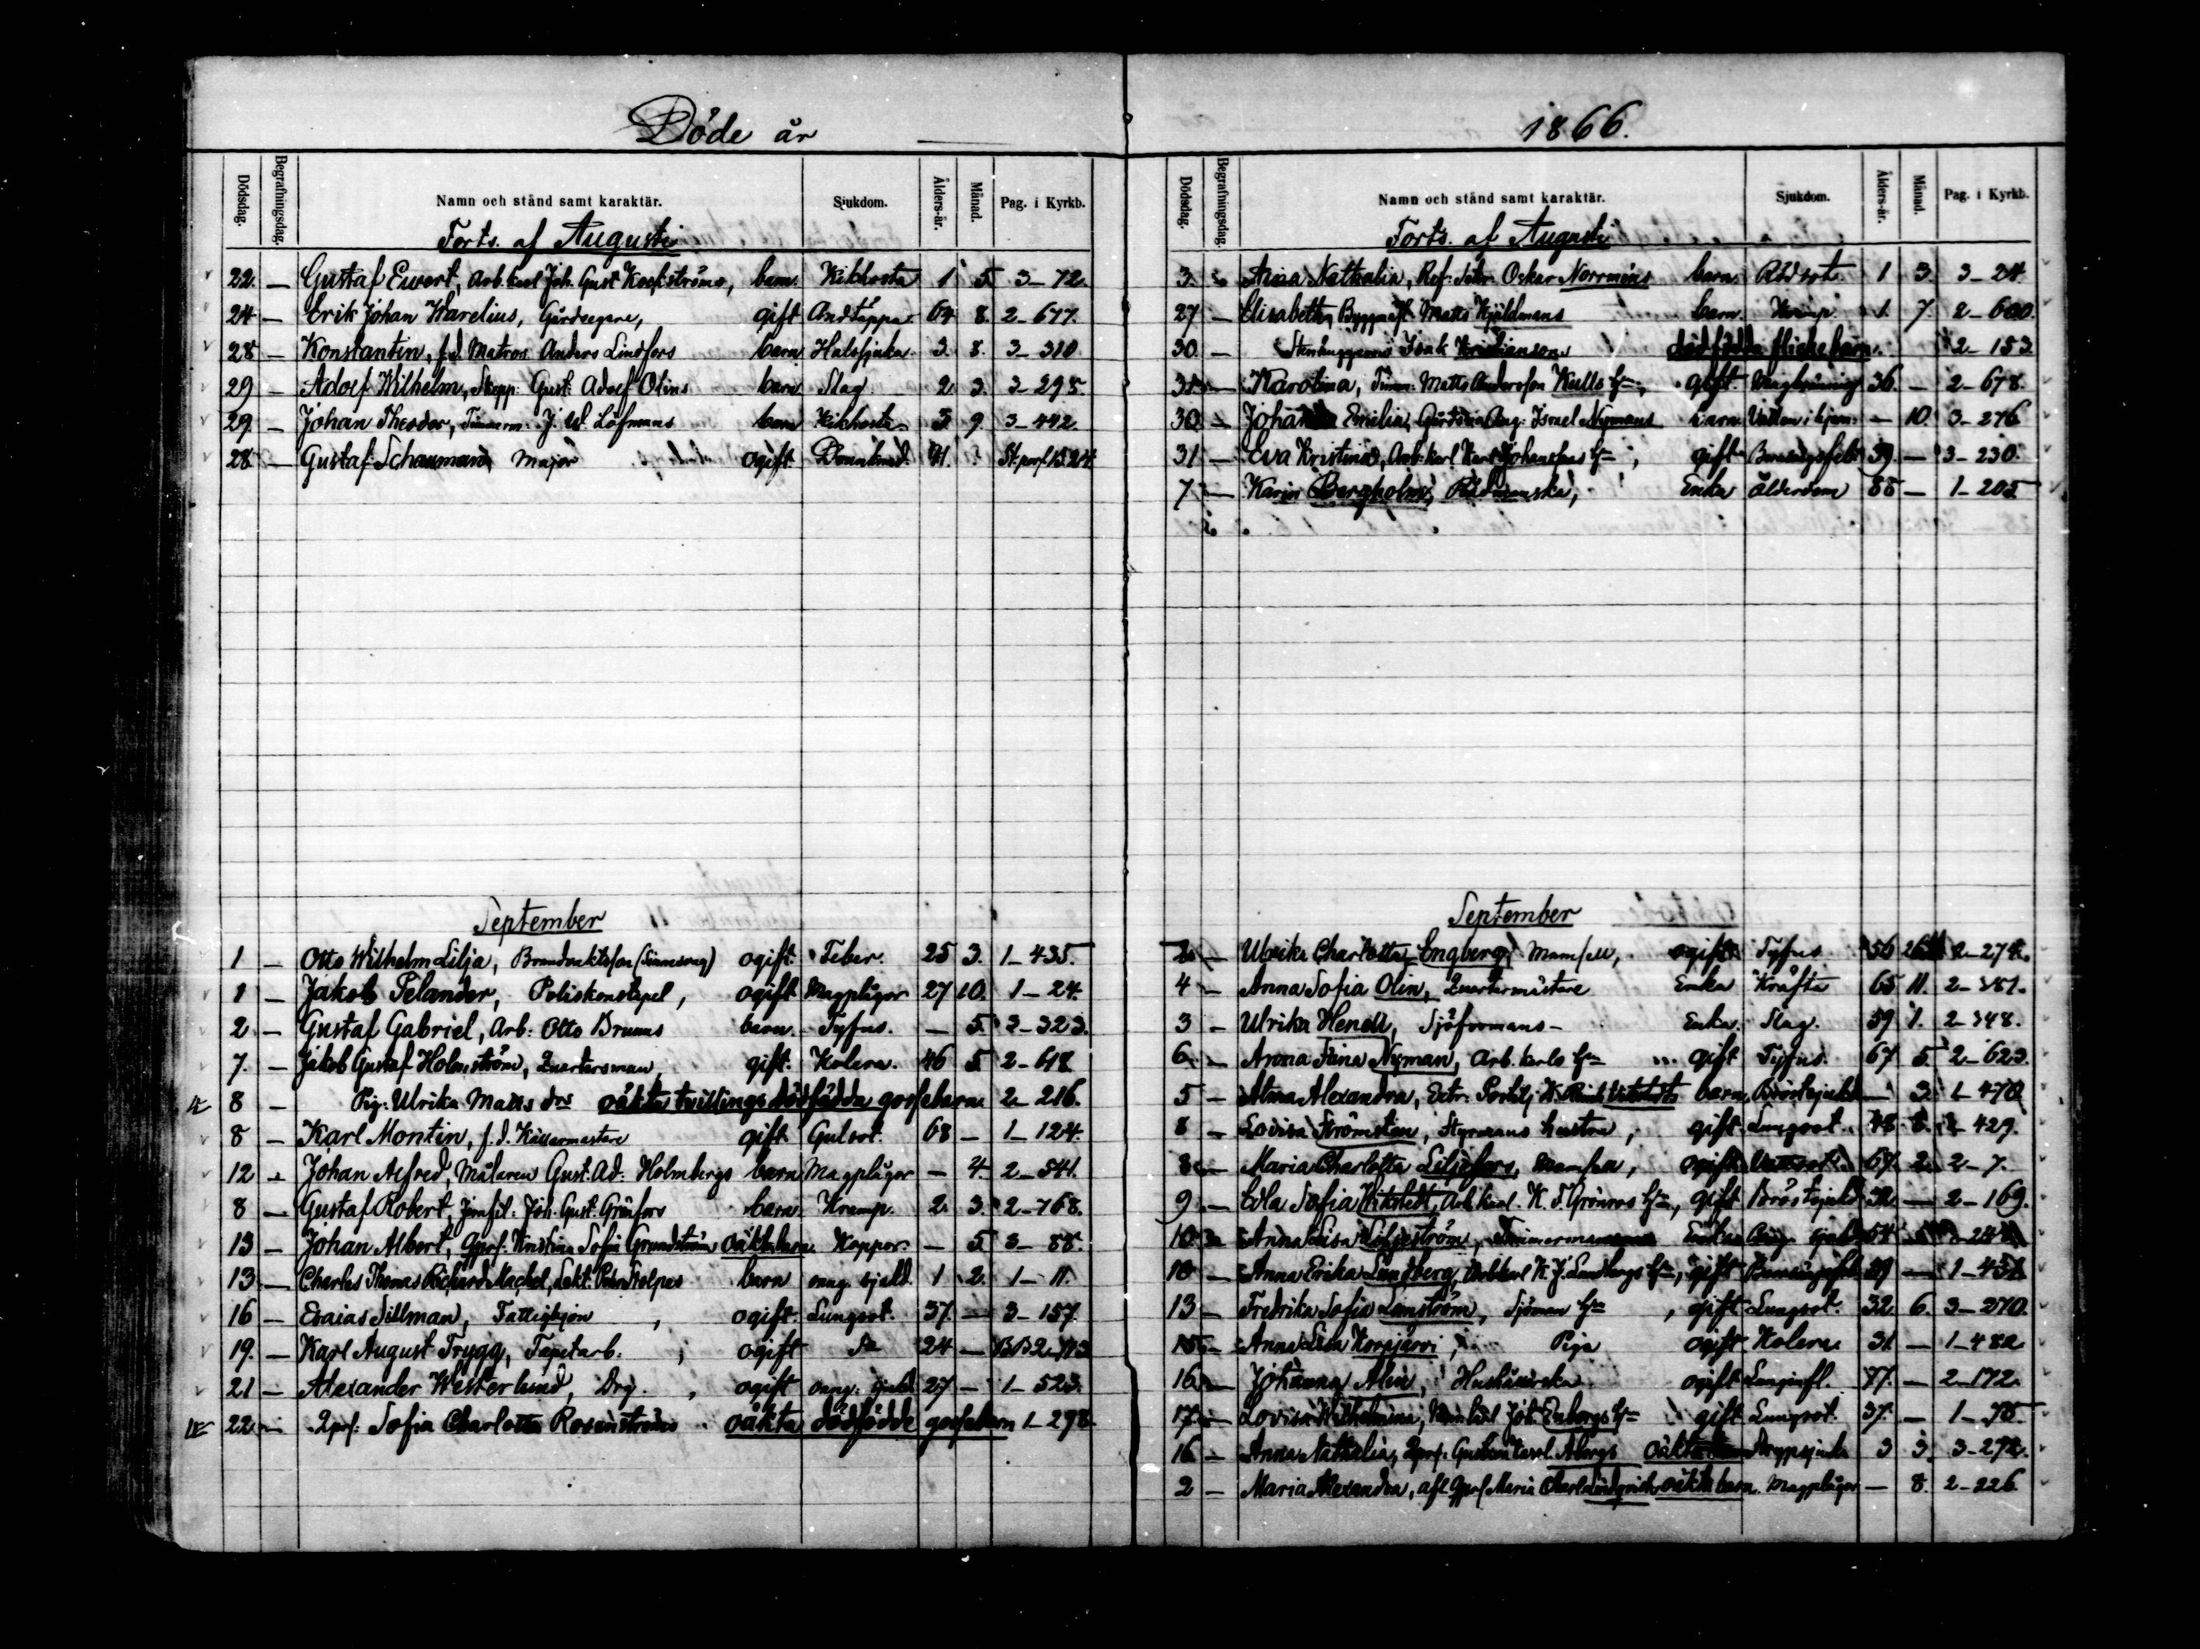 Döde år
Dödsdag. Begrafningsdag. Namn och stånd samt karaktär. Sjukdom. Ålders-år. Månad. Pag. i Kyrkb.
Forts. af Augusti
22. — Gustaf Ewert, Arb. karl Joh. Gust barn Kikhosta 1 5 3-72.
24 — Erik Johan Warelius, Gårdsegare, gift Andtäppa 64 8. 2-677.
28 — Konstantin, f.d. Matros Anders Lindfors barn Halssjuka 3. 8. 3-310
29 — Adolf Wilhelm, Skepp. Gust. Adolf Olins barn Slag 2. 3. 3-295.
29. — Johan Theodor, Timmerm. J. W. Löfmans barn Kikhosta 3. 9. 3-442.
28 — Gustaf Schauman, Major ogift
September
1 — Otto Wilhelm Lilja, ogift Feber. 25 3. 1-435.
1 — Jakob Pelander, Poliskonstapel, ogift Magplågor 27 10. 1-24.
2 — Gustaf Gabriel, Arb. Otto Bruuns barn Tyfus. — 5. 3-323.
7. — Jakob Gustaf Holmström, Quartersman gift. Kolera. 46 5 2-618
8 — Pig. Ulrika Matts drs oäkta tvillings dödfödda gossebarn. 2-216.
8 — Karl Montin, f.d. Källarmästare gift Gulsot. 68 — 1-124.
12 — Johan Alfred, Målaren Gust. Ad. Holmbergs barn Magplågor — 4. 2-541.
8 — Gustaf Robert, Joh. Gust. Grönfors barn. Kramp. 2. 3. 2-768.
13 — Johan Albert, Qprs. Kristina Sofia Grundström oäkta barn. Koppor. — 5. 3-88.
13 — Charles Thomas Richard barn 1 2. 1-11.
16 — Esaias Sillman, Fattighjon, ogift. Lungsot. 37. — 3-157.
19. — Karl August Trygg, Tapetarb. ogift do 24 —
21 — Alexander Westerlund, Drg. ogift 27 — 1-523.
22 — Qprs. Sofia Charlotta Rosenströms oäkta dödfödde gossebarn 1-298
1866.
Dödsdag. Begrafningsdag. Namn och stånd samt karaktär. Sjukdom. Ålders-år. Månad. Pag. i Kyrkb.
Forts. af Augusti
3. — Anna Nathalia, Oskar Norrmèns barn. Rödsot. 1 3. 3-24.
27 — Elisabeth, Byggmäst Matts Kjäldmans barn. Kramp. 1. 7. 2-600.
30. — Stenhuggaren Isak Kristiansons dödfödda flickebarn. 2-153
— Karolina, Timm. Matts Andersson Kulls hu, gift 36. — 2-678.
30 — Emilia, Israel Nymans barn — 10. 3-276
31 — Eva Kristina, Arb. karl Karl Johanssons hu, gift 39. — 3-230.
7 — Karin Bergholm, Enka Ålderdom 88 — 1-205
September
2. — Ulrika Charlotta Engberg, Mamsell, ogift Tyfus 56
4 — Anna Sofia Olin, Quartermästare Enka Kräfta 65 11. 2-381.
3 — Ulrika Henell, Sjöformans- Enka. Slag. 59 1. 2-348.
6 — Anna Stina Nyman, Arb. karls hu gift Tyfus. 67 5. 2-623.
5 — Alma Alexandra, barn Bröstsjukd — 3. 1-470
8 — Lovisa Strömsten, Styrmans hustru, gift Lungsot. 48
8 — Maria Charlotta Liljefors, Mamsell, ogift 67. 2. 2-7.
9 — Edla Sofia Wikstedt, Arb. karl. K. F. Grönroos hu, gift Bröstsjukd 32. — 2-169.
10 — Anna Lisa Liljeström, Timmermans Enka 54
10 — Anna Erika Lundberg, Arbkarl K. J. Lundbergs hu, gift —
13 — Fredrika Sofia Lemström, Sjöman hu, gift Lungsot. 32. 6. 3-270.
15 — Anna Lisa Korpjärvi, Piga ogift Kolera 31. — 1-482
16 — Johanna Alen, ogift 77. — 2-172.
17. — Lovisa Wilhelmina, Joh. Enbergs hu gift Lungsot. 37. — 1-75.
16 — Anna Nathalia, Qprs. Åbergs oäkta Strypsjuka 3 3. 3-272.
2 — Maria Alexandra, afl. Qprs Maria Charl. Lindqvists oäkta barn. Magplågor — 8. 2-226.